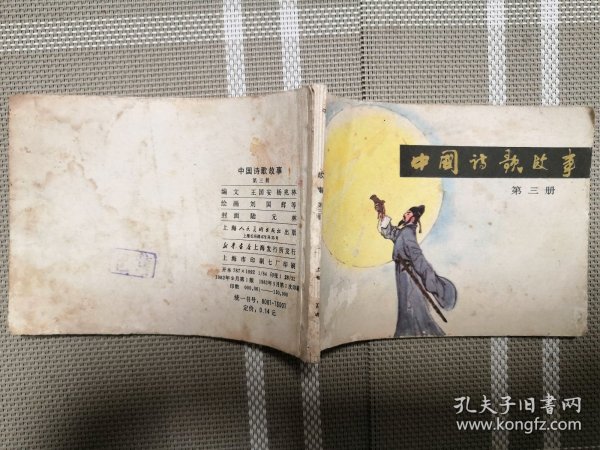 中国诗歌故事
第三册
编文 王国安 杨兆林
绘画 刘国辉等
封面 陆元林
上海人民美术出版社出版
新华书店上海发行所发行
上海市印刷七厂印刷
开本 787×1092 1/64
1982年9月第1版 1982年9月第1次印刷
统一书号：8081·13001
定价：0.14元
中国诗歌故事
第三册
孔夫子旧书网
www.kongfz.com